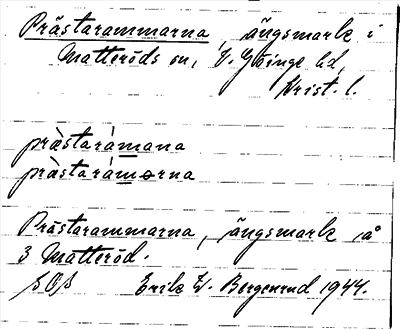 Prästarammarna, ängsmark i
Matteröds sn, V. Göinge hd,
Krist. l.
prästarámana
prästarámərna
Prästarammarna, ängsmark på
3 Matteröd.
Erik W. Bergenrud 1944.